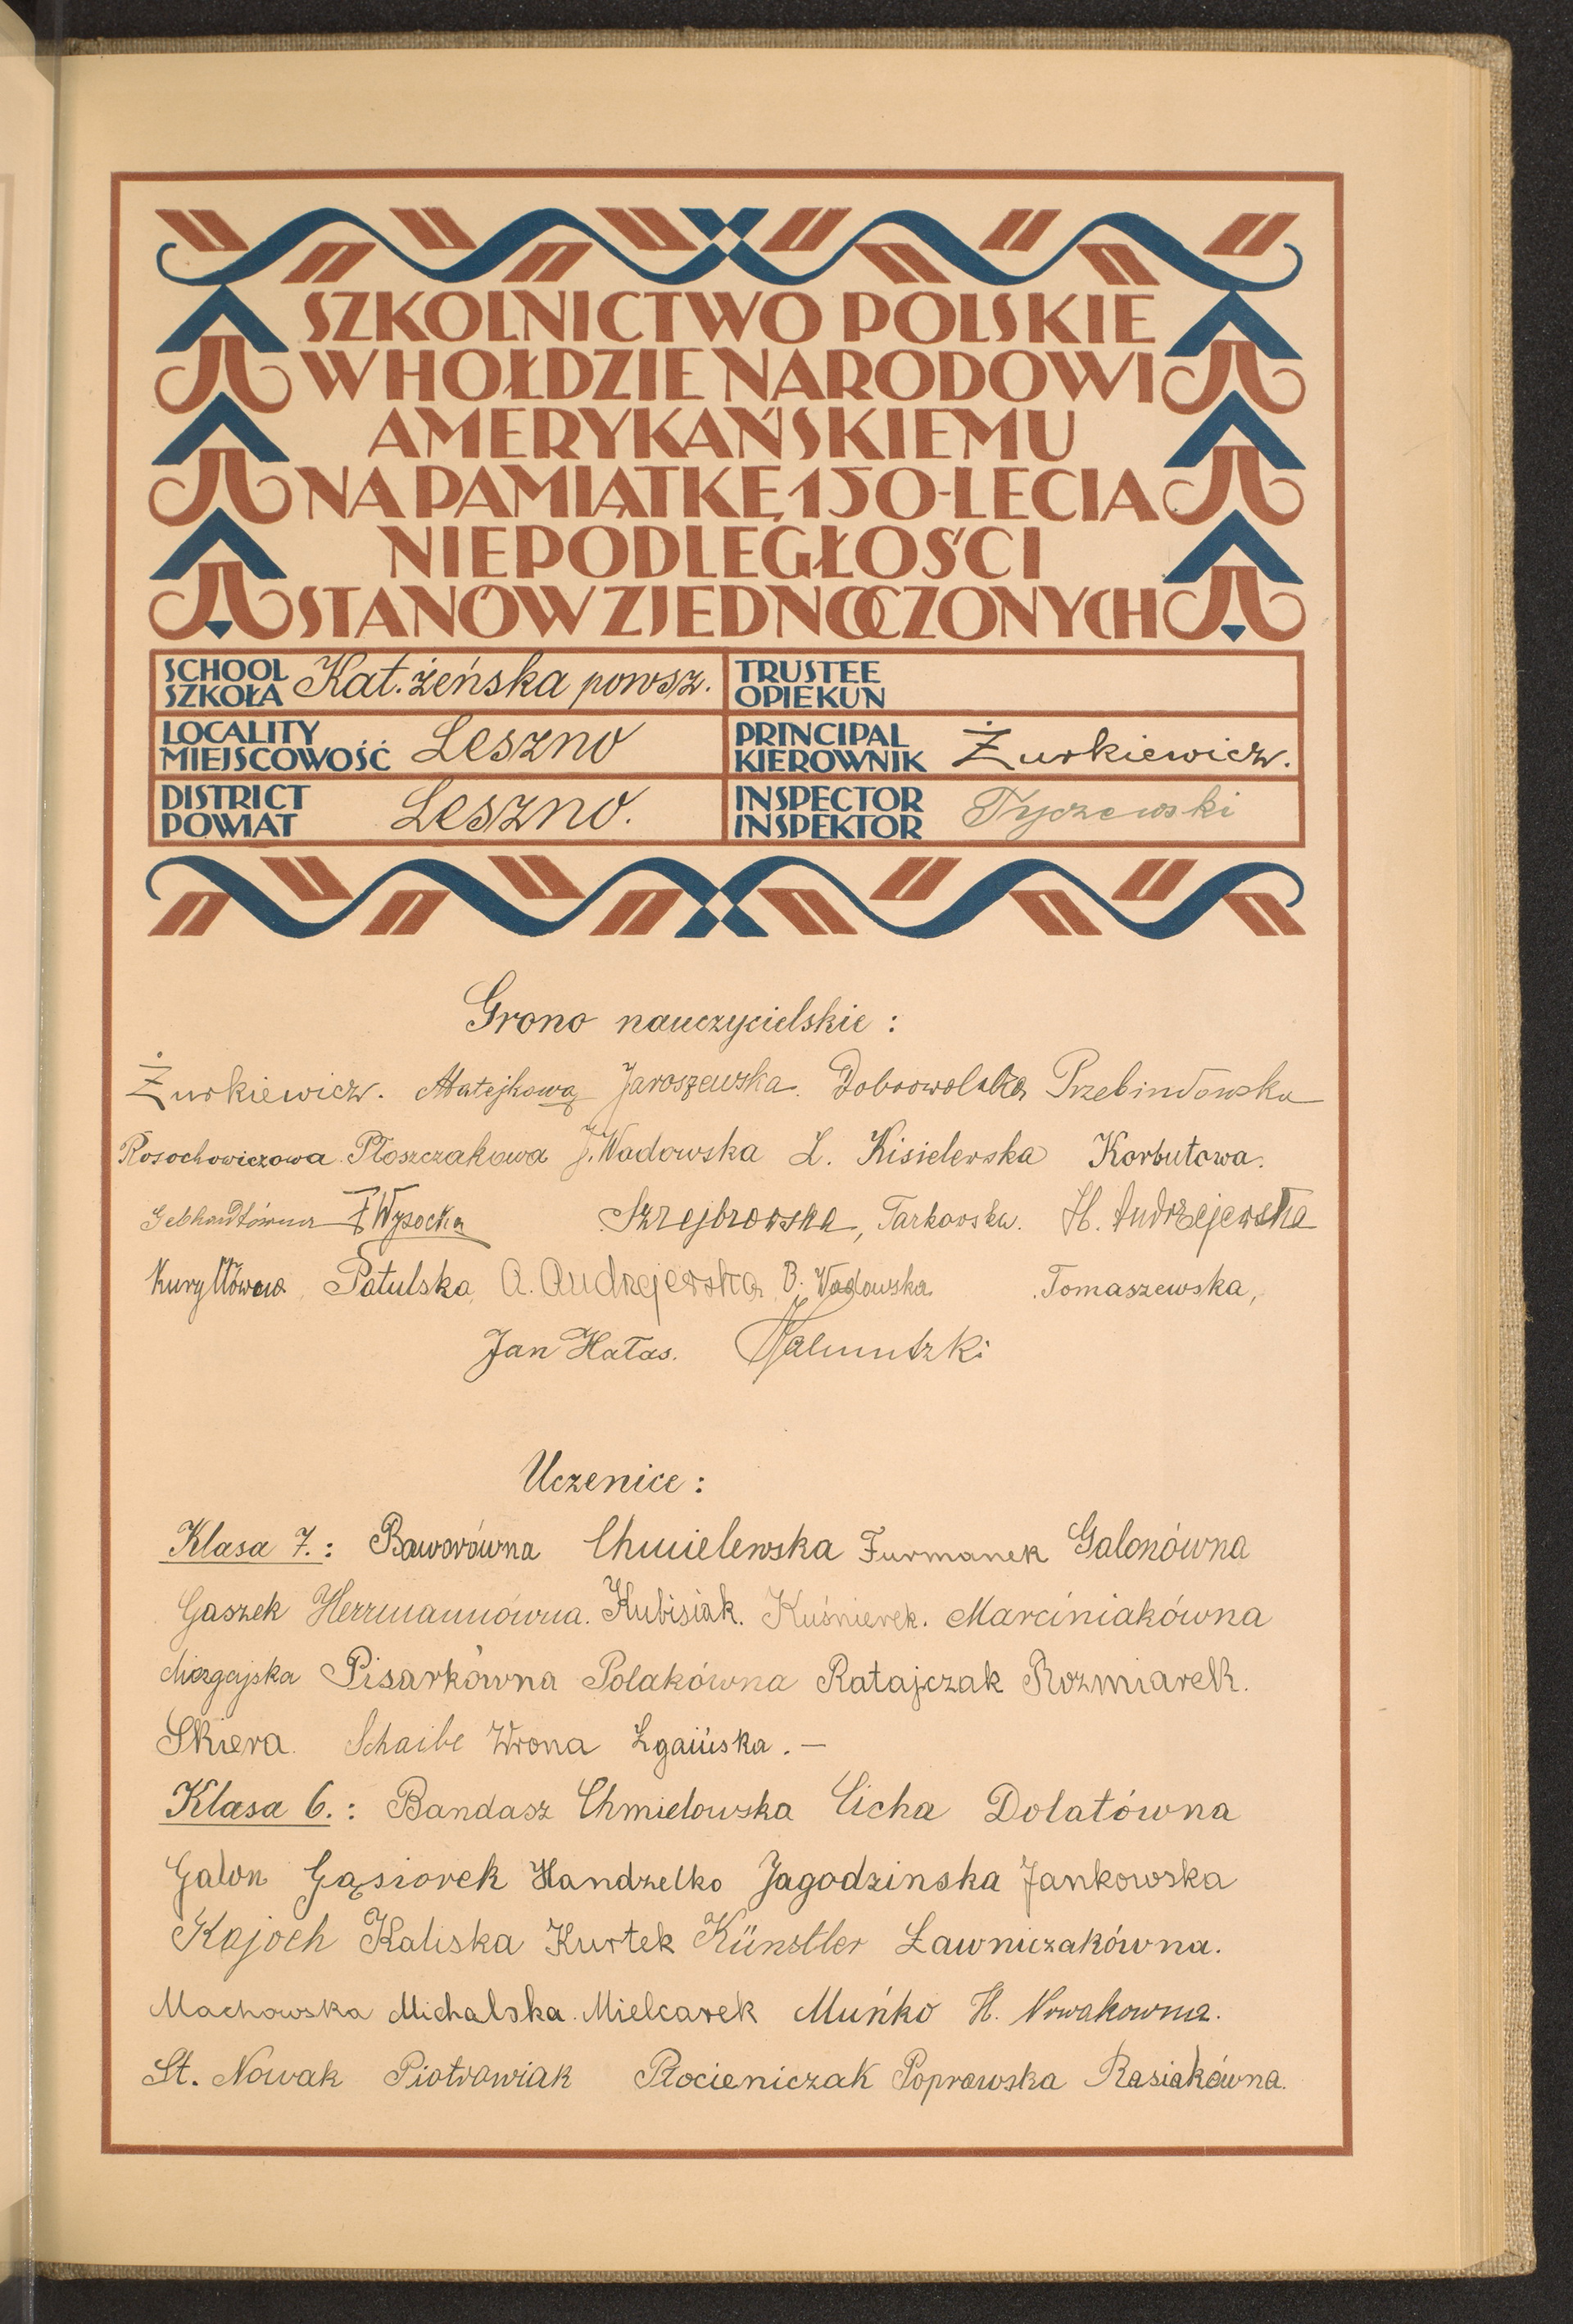 SZKOLNICTWO POLSKIE
W HOŁDZIE NARODOWI
AMERYKAŃSKIEMU
NA PAMIĄTKĘ 150-LECIA
NIEPODLEGŁOŚCI
STANÓW ZJEDNOCZONYCH
SCHOOL SZKOŁA Kat. żeńska powsz.
TRUSTEE OPIEKUN
LOCALITY MIEJSCOWOŚĆ Leszno
PRINCIPAL KIEROWNIK Żurkiewicz.
DISTRICT POWIAT Leszno.
INSPECTOR INSPEKTOR Tyczewski
Grono nauczycielskie :
Żurkiewicz. Matejkowa Jaroszewska. Dobrowolska Przebindowska
Rosochowiczowa Płoszczakowa J. Wadowska L. Kisielewska Korbutowa.
Gebhardtówna Wysocka Szrejbrowska, Tarkowska. H. Andrzejewska
Kuryłłówna, Patulska, A. Andrzejewska B. Wadowska Tomaszewska,
Jan Hałas.
Uczenice :
Klasa 7. : Baworówna Chmielewska Furmanek Galonówna
Gaszek Herrmannówna. Kubisiak. Kuśnierek. Marciniakówna
Miezgajska Pisarkówna Polakówna Ratajczak Rozmiarek.
Skiera. Schaibe Wrona Zgaińska. —
Klasa 6. : Bandasz Chmielowska Cicha Dolatówna
Galon Gąsiorek Handzelko Jagodzinska Jankowska
Kajoch Kaliska Kurtek Künstler Ławniczakówna.
Machowska Michalska. Mielcarek Muńko H. Nowakowna.
St. Nowak Piotrowiak Płocieniczak Poprawska Rasiakówna.